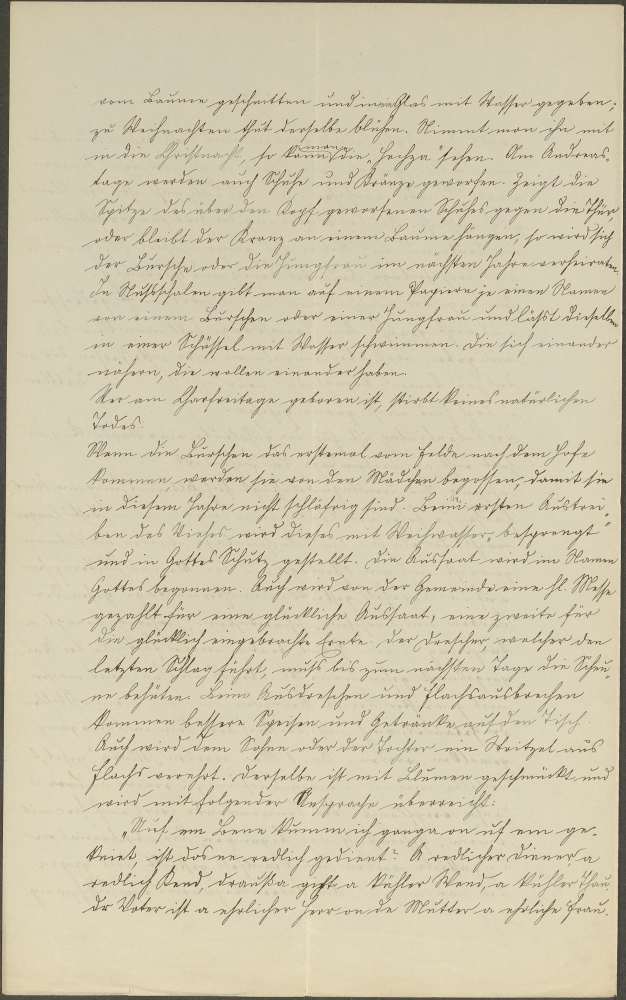 vom Baume geschnitten und in ein Glas mit Wasser gegeben;
zu Weihnachten thut derselbe blühen. Nimmt man ihn mit
in die Christnacht, so kann man die „Hechza" sehen. Am Andreas-
tage werden auch Schuhe und Kränze geworfen. Zeigt die
Spitze des über den Kopf geworfenen Schuhes gegen die Thür
oder bleibt der Kranz an einem Baume hängen, so wird sich
der Bursche oder die Jungfrau im nächsten Jahre verheiraten.
In Nußschalen gibt man auf einem Papiere je einen Namen
von einem Burschen oder einer Jungfrau und läßt dieselben
in einer Schüssel mit Wasser schwimmen. Die sich einander
nähern, die wollen einander haben.
Wer am Charfreitage geboren ist, stirbt keines natürlichen
Todes.
Wenn die Burschen das erstemal vom Felde nach dem Hofe
kommen, werden sie von den Mädchen begossen, damit sie
in diesem Jahre nicht schläfrig sind. Beim ersten Austrei-
ben des Viehes wird dieses mit Weihwasser besprengt
und in Gottes Schutz gestellt. Die Aussaat wird im Namen
Gottes begonnen. Auch wird von der Gemeinde eine hl. Messe
gezahlt für eine glückliche Aussaat, eine zweite für
die glücklich eingebrachte Ernte. Der Drescher, welcher den
letzten Schlag führt, muß bis zum nächsten Tage die Scheu-
ne behüten. Beim Ausdreschen und Flachsausbrechen
kommen bessere Speisen und Getränke auf den Tisch.
Auch wird dem Sohne oder der Tochter ein Stritzel aus
Flachs verehrt. Derselbe ist mit Blumen geschmückt und
wird mit folgender Ansprache überreicht:
„Auf em Bene kumm ich gonga on uf em ge-
kniet, ist dos ne redlich gedient? A redlicher Diener a
redlich Kend, draußa geht a kühler Wend, a kühler Thau,
dr Voter ist a ehrlicher Herr on de Mutter a ehrliche Frau.